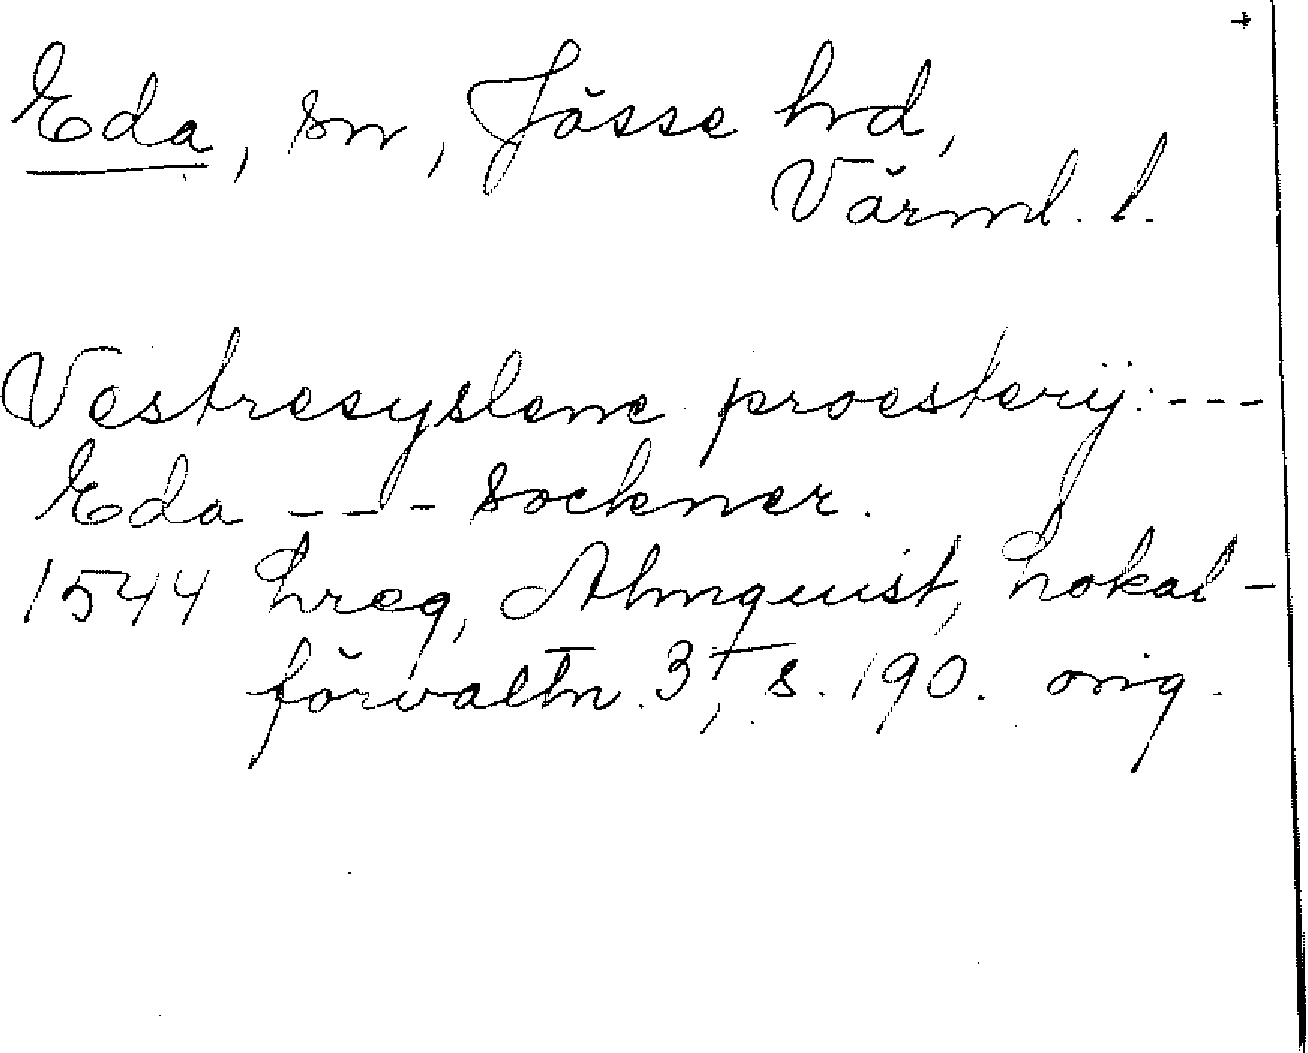 Eda, sn, Jösse hd,
Värml. l.
Vestresyslene proesterij: ---
Eda --- sockner.
1544 Lreg, Almquist, Lokal-
förvaltn. 3, s. 190. orig.